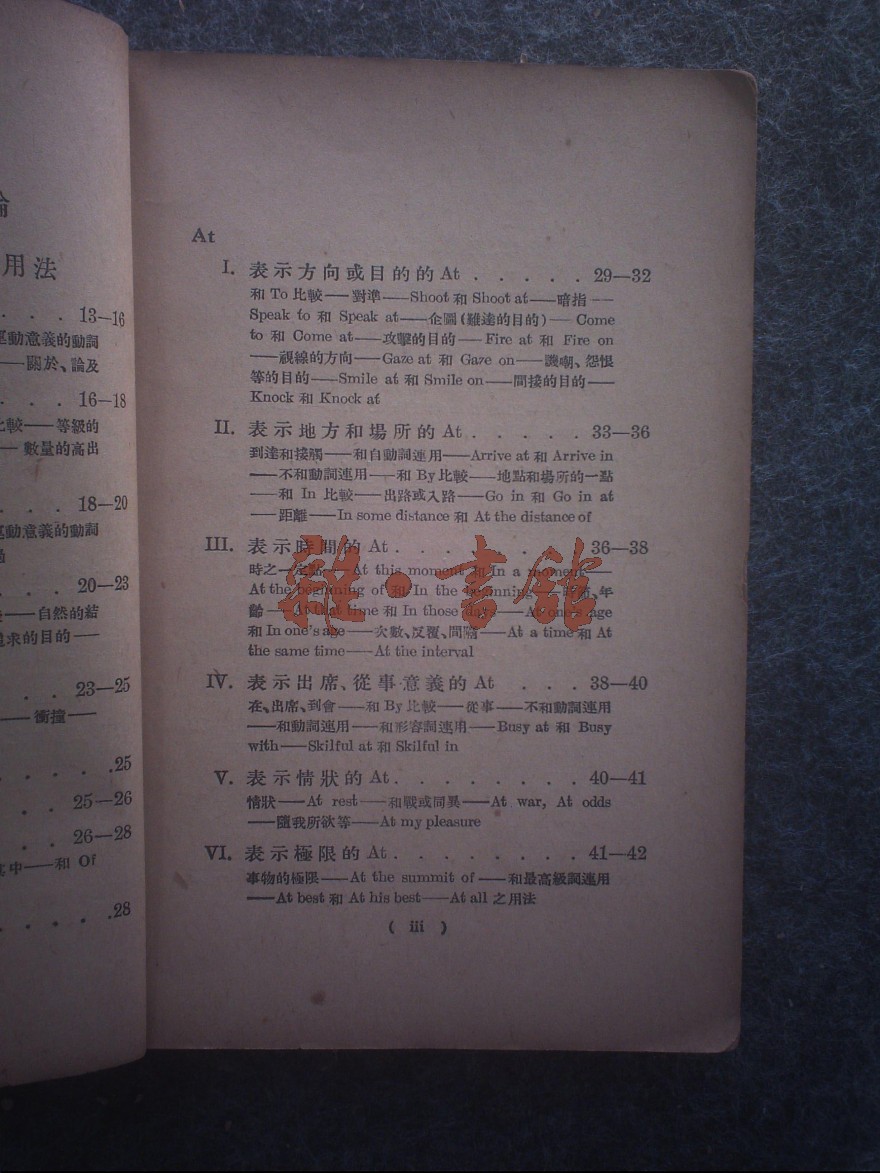 論
用法
. . . 13—16
運動意義的動詞
——關於、論及
. . . 16—18
比較——等級的
——數量的高出
. . . 18—20
運動意義的動詞
. . . 20—23
——自然的結
追求的目的——
. . 23—25
——衝撞——
. . . . . .25
. . 25—26
. . 26—28
其中——和 Of
. . . . .28
At
I. 表示方向或目的的 At . . . . . 29—32
和 To 比較——對準——Shoot 和 Shoot at——暗指——
Speak to 和 Speak at——企圖(難達的目的)——Come
to 和 Come at——攻擊的目的——Fire at 和 Fire on
——視線的方向——Gaze at 和 Gaze on——譏嘲、怨恨
等的目的——Smile at 和 Smile on——間接的目的——
Knock 和 Knock at
II. 表示地方和場所的 At . . . . . 33—36
到達和接觸——和自動詞連用——Arrive at 和 Arrive in
——不和動詞連用——和 By 比較——地點和場所的一點
——和 In 比較——出路或入路——Go in 和 Go in at
——距離——In some distance 和 At the distance of
III. 表示時間的 At . . . . . . . . 36—38
時之一定點——At this moment 和 In a moment——
At the beginning of 和 In the beginning——時節、年
齡——At that time 和 In those days——At one's age
和 In one's age——次數、反覆、間隔——At a time 和 At
the same time——At the interval
IV. 表示出席、從事意義的 At . . . 38—40
在、出席、到會——和 By 比較——從事——不和動詞連用
——和動詞連用——和形容詞連用——Busy at 和 Busy
with——Skilful at 和 Skilful in
V. 表示情狀的 At . . . . . . . . 40—41
情狀——At rest——和戰或同異——At war, At odds
——隨我所欲等——At my pleasure
VI. 表示極限的 At . . . . . . . . 41—42
事物的極限——At the summit of——和最高級詞連用
——At best 和 At his best——At all 之用法
( iii )
雜·書館